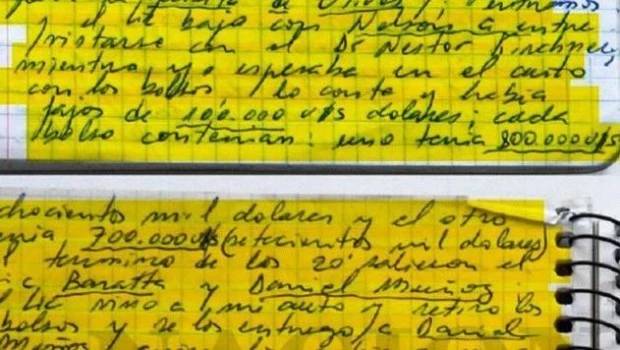 de Olivos
y el Lic bajo con Nelson a entre
vistarse con el Dr Nestor Kirchner,
mientras yo esperaba en el auto
con los bolsos / lo conte y habia
fajos de 100.000 u/s dolares; cada
bolso contenian: uno tenia 800.000 u/s
ochocientos mil dolares y el otro
tenia 700.000 u/s (setecientos mil dolares)
termino de los 20' salieron el
Lic Baratta y Daniel Muñoz
el Lic vino a mi auto y retiro los
bolsos y se los entrego a Daniel
Muñoz